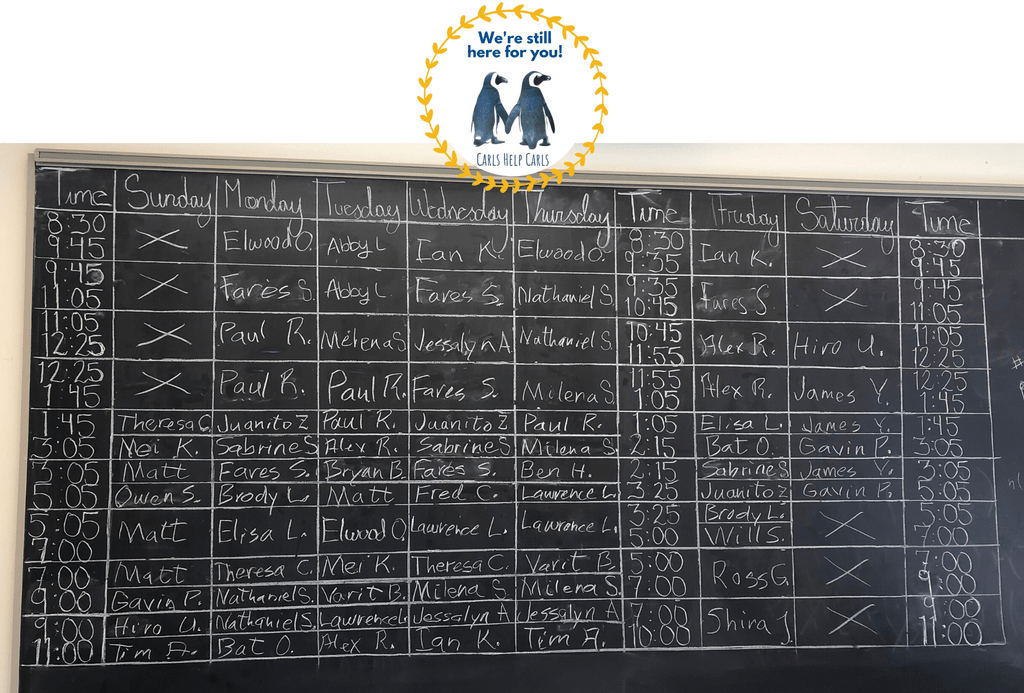 We're still
here for you!
CARLS HELP CARLS
Time Sunday Monday Tuesday Wednesday Thursday Time Friday Saturday Time
8:30 9:45 X Elwood O. Abby L Ian K. Elwood O. 8:30 9:35 Ian K. X 8:30 9:45
9:45 11:05 X Fares S. Abby L Fares S. Nathaniel S. 9:35 10:45 Fares S X 9:45 11:05
11:05 12:25 X Paul R. Milena S Jessalyn A Nathaniel S. 10:45 11:55 Alex R. Hiro U. 11:05 12:25
12:25 1:45 X Paul R. Paul R. Fares S. Milena S 11:55 1:05 Alex R. James Y. 12:25 1:45
1:45 Theresa C. Juanito Z Paul R. Juanito Z Paul R. 1:05 Elisa L. James Y. 1:45
3:05 Mei K. Sabrine S Alex R. Sabrine S Milena S. 2:15 Bat O. Gavin P. 3:05
3:05 Matt Fares S. Bryan B. Fares S. Ben H. 2:15 Sabrine S James Y. 3:05
5:05 Owen S. Brody L. Matt Fred C. Lawrence L. 3:25 Juanito Z Gavin P. 5:05
5:05 7:00 Matt Elisa L. Elwood O. Lawrence L. Lawrence L. 3:25 5:00 Brody L. Will S. X 5:05 7:00
7:00 Matt Theresa C. Mei K. Theresa C. Varit B. 5:00 Ross G. X 7:00
9:00 Gavin P. Nathaniel S. Varit B. Milena S Milena S. 7:00 9:00
9:00 Hiro U. Nathaniel S. Lawrence L Jessalyn A Jessalyn A 7:00 Shira J. X 9:00
11:00 Tim A. Bat O. Alex R. Ian K. Tim A. 10:00 11:00